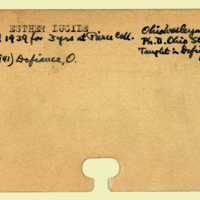 ESTHER LUCILE
1939 for 3 yrs at Pierce Coll.
41) Defiance, O.
Ohio Wesleyan
Ph.D. Ohio St
Taught in Defi